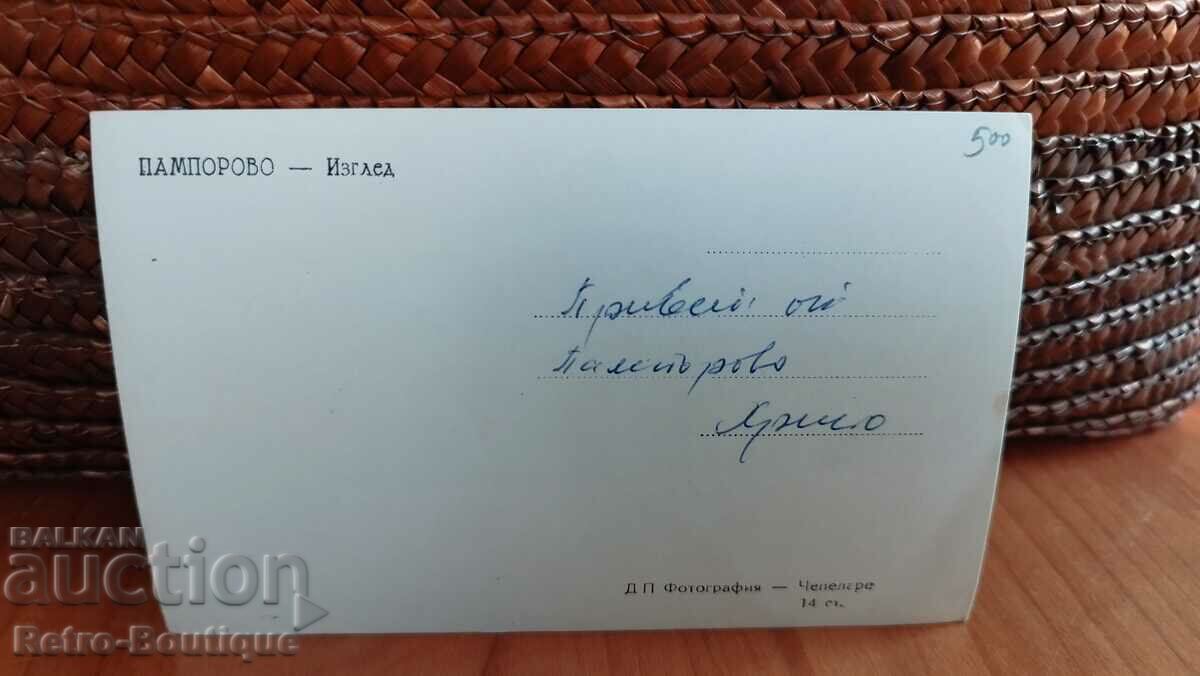 ПАМПОРОВО — Изглед
500
Привет от
Пампорово
Христо
ДП Фотография — Чепеларе
14 ст.
BALKAN
auction
Retro-Boutique